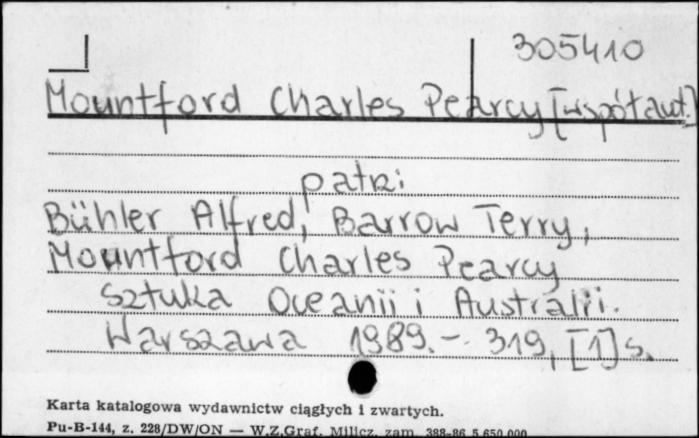 305410
Mountford Charles Pearcy [współaut.]
patrz:
Bühler Alfred, Barrow Terry,
Mountford Charles Pearcy
Sztuka Oceanii i Australii.
Warszawa 1989. - 319, [1] s.
Karta katalogowa wydawnictw ciągłych i zwartych.
Pu-B-144, z. 228/DW/ON — W.Z.Graf. Milicz, zam. 388-86 5.650.000